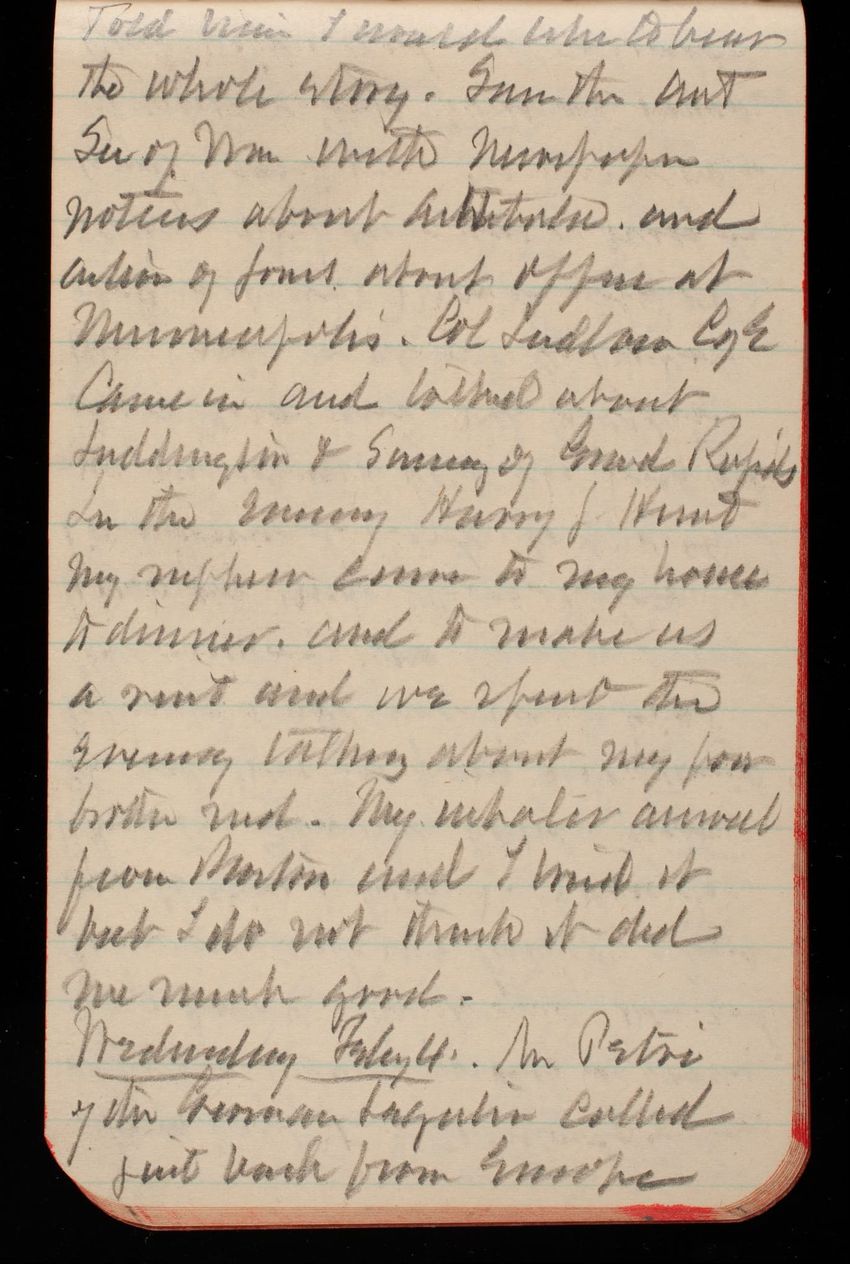 Told him I would like to hear
the whole story. Saw the act
Sec of War with Newspaper
notices about and
action of about at
Minneapolis. Col Ludlow C of E
Came in and talked about
Luddington & of Grand Rapids
In the evening Harry J Hunt
my nephew came to my house
to dinner. and to make us
a visit and we spent the
evening talking about my poor
brother Ned. My inhaler arrived
from Boston and I tried it
but I do not think it did
me much good.
Wednesday Feby 4. Mr Petri
of the German Legation called
just back from Europe